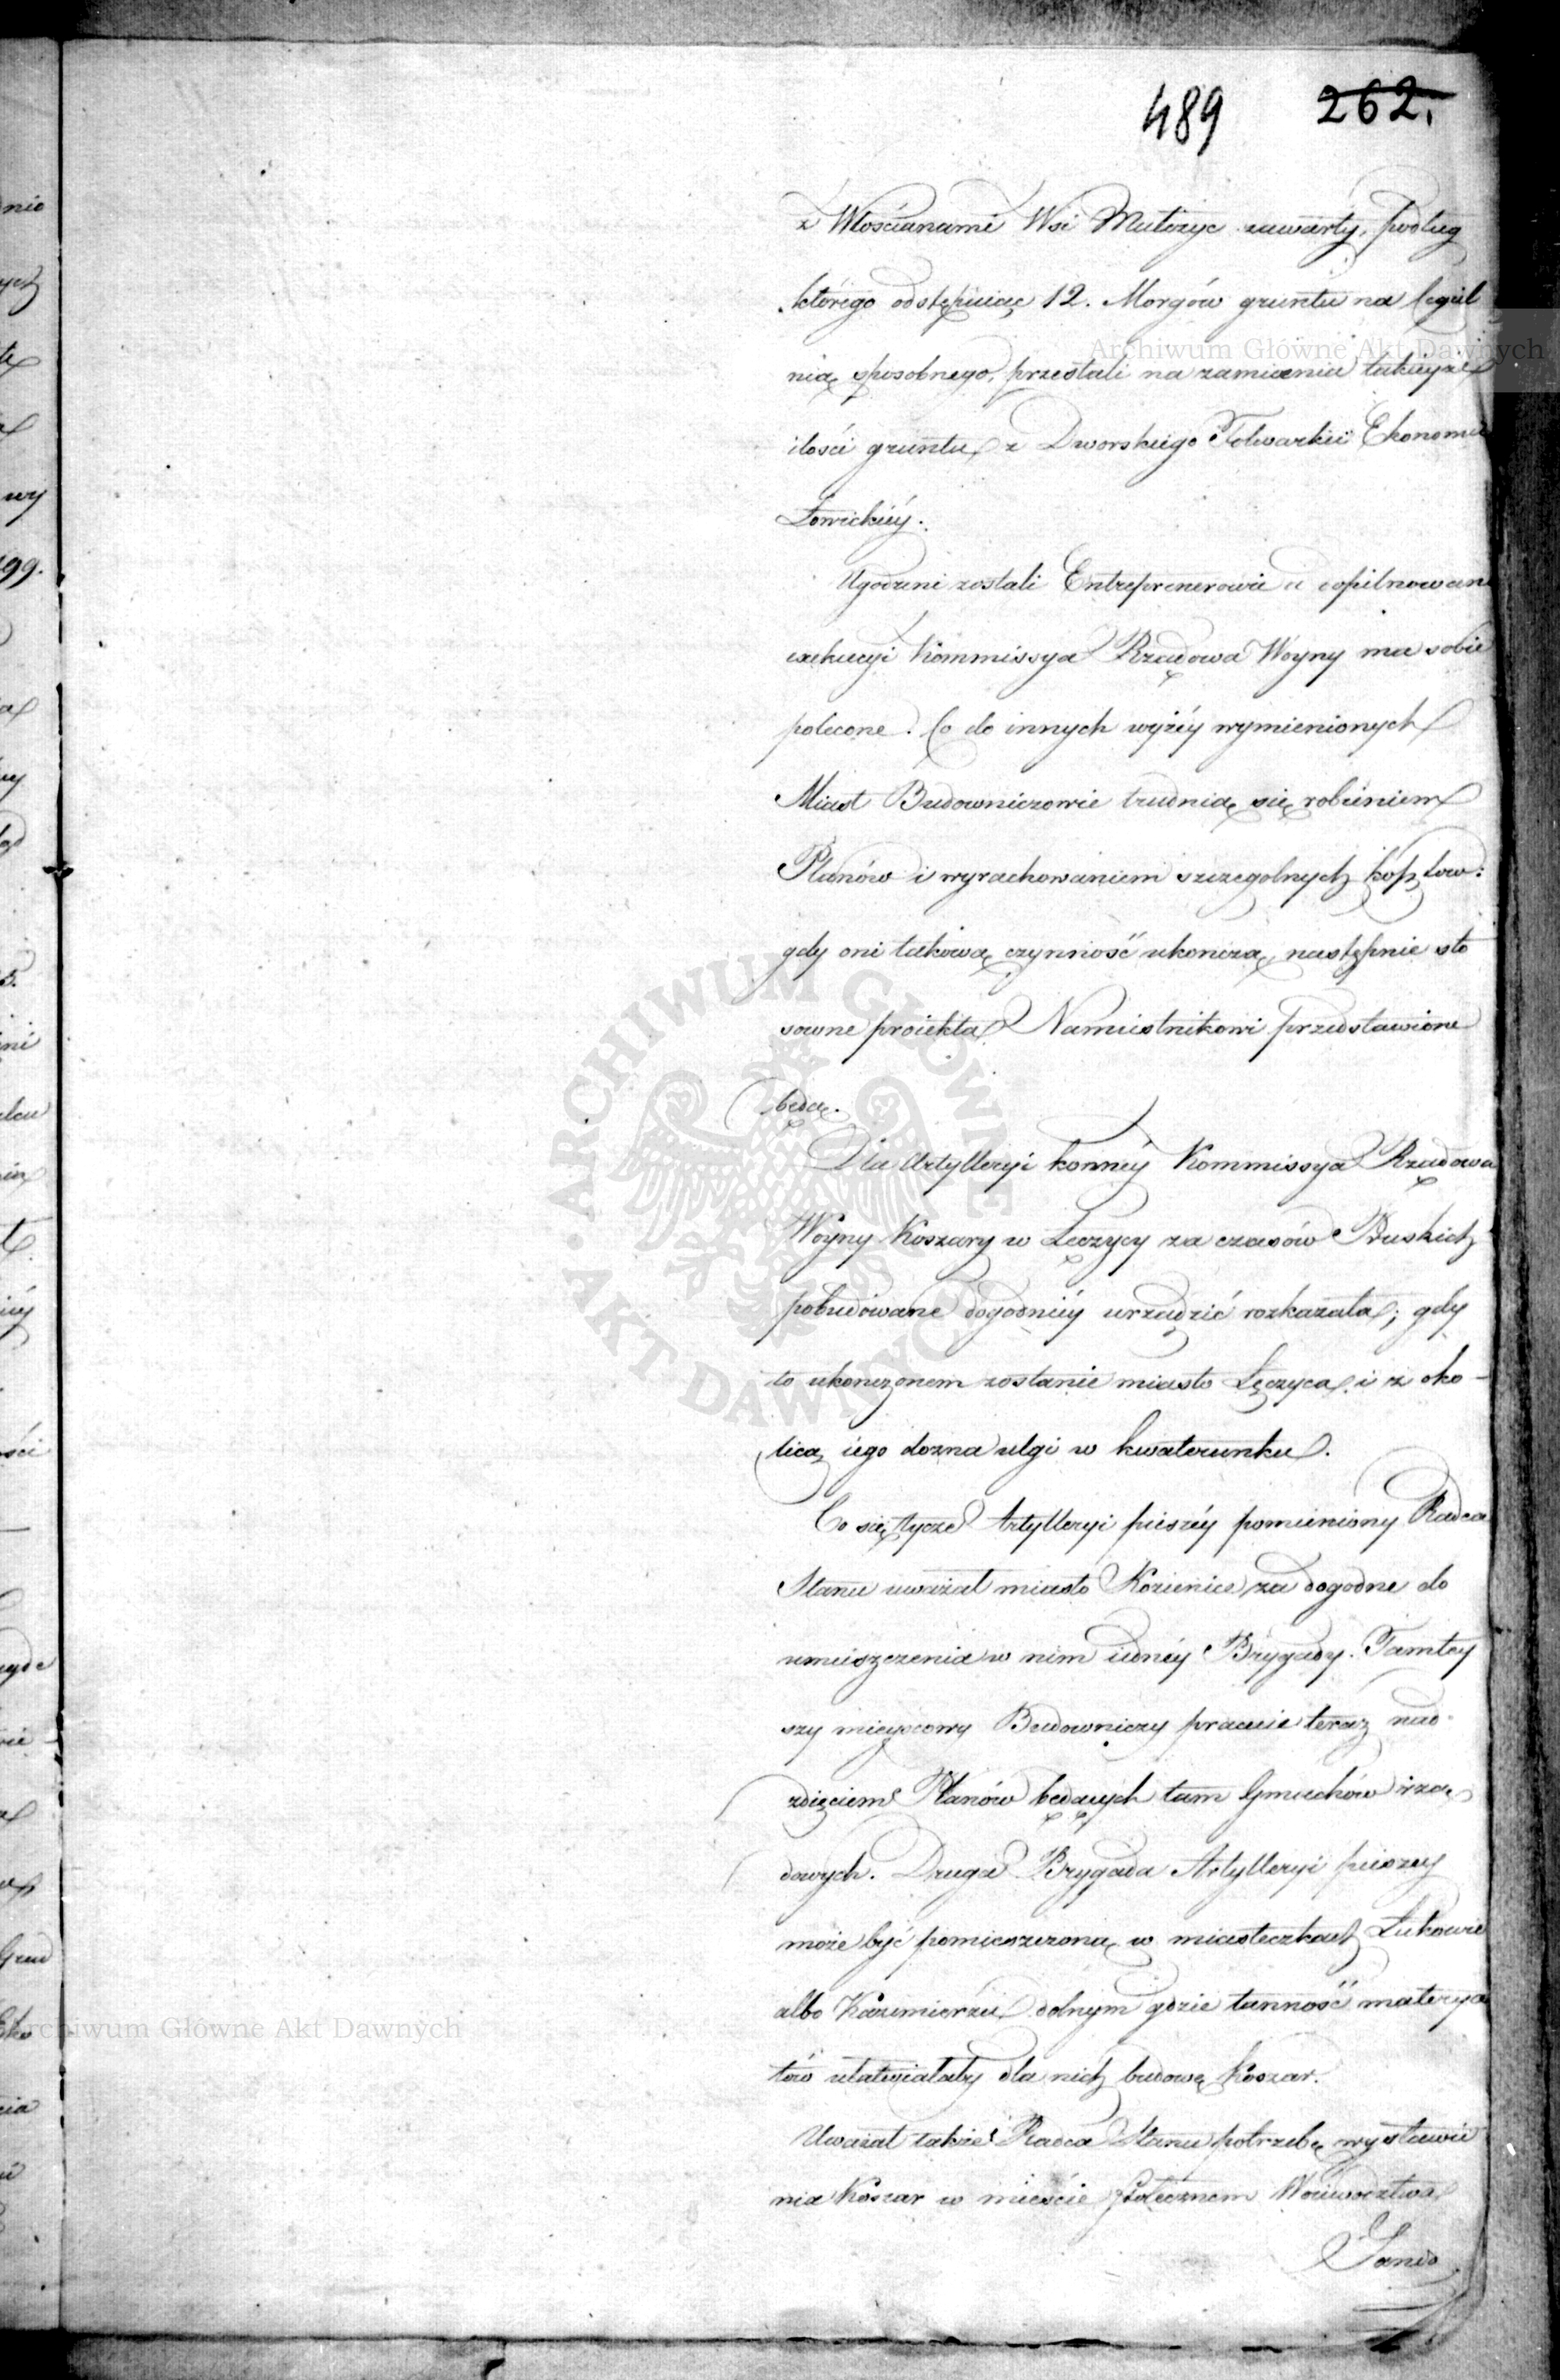 489 262.
z Włościanami Wsi Małszyc zawarty, podług
którego odstępuiąc 12. Morgów gruntu na Cegiel
nią sposobnego, przestali na zamianie takieyże
ilości gruntu z Dworskiego Folwarku Ekonomii
Łowickiéy.
Ugodzeni zostali Entreprenerowie a dopilnowanie
exekucyi Kommissya Rządowa Woyny ma sobie
polecone. Co do innych wyżéy wymienionych
Miast Budowniczowie trudnią się robieniem
Planów i wyrachowaniem szczegolnych kosztow:
gdy oni takową czynność ukonczą, następnie sto
sowne proiekta Namiestnikowi przedstawione
będą.
Dla Artylleryi konnéy Kommissya Rządowa
Woyny Koszary w Łęczycy za czasów Pruskich
pobudowane dogodniéy urządzić rozkazała; gdy
to ukonczonem zostanie miasto Łęczyca i z oko-
licą iego dozna ulgi w kwaterunku.
Co się tycze Artylleryi pieszéy pomieniony Radca
Stanu uważał miasto Kozienice za dogodne do
umieszczenia w nim iednéy Brygady. Tamtey
szy mieyscowy Budowniczy pracuie teraz nad
zdięciem Planów będących tam Gmachów rzą
dowych. Druga Brygada Artylleryi pieszey
może być pomieszczoną w miasteczkach Łukowie
albo Kazimierzu dolnym gdzie tanność materya
łów ułatwiałaby dla nich budowę Koszar.
Uważał także Radca Stanu potrzebę wystawie
nia Koszar w mieście stołecznem Woiewodztwa
Sando
nie
wy
199.
ści
Eko
cia
Archiwum Główne Akt Dawnych
Archiwum Główne Akt Dawnych
ARCHIWUM GŁÓWNE AKT DAWNYCH